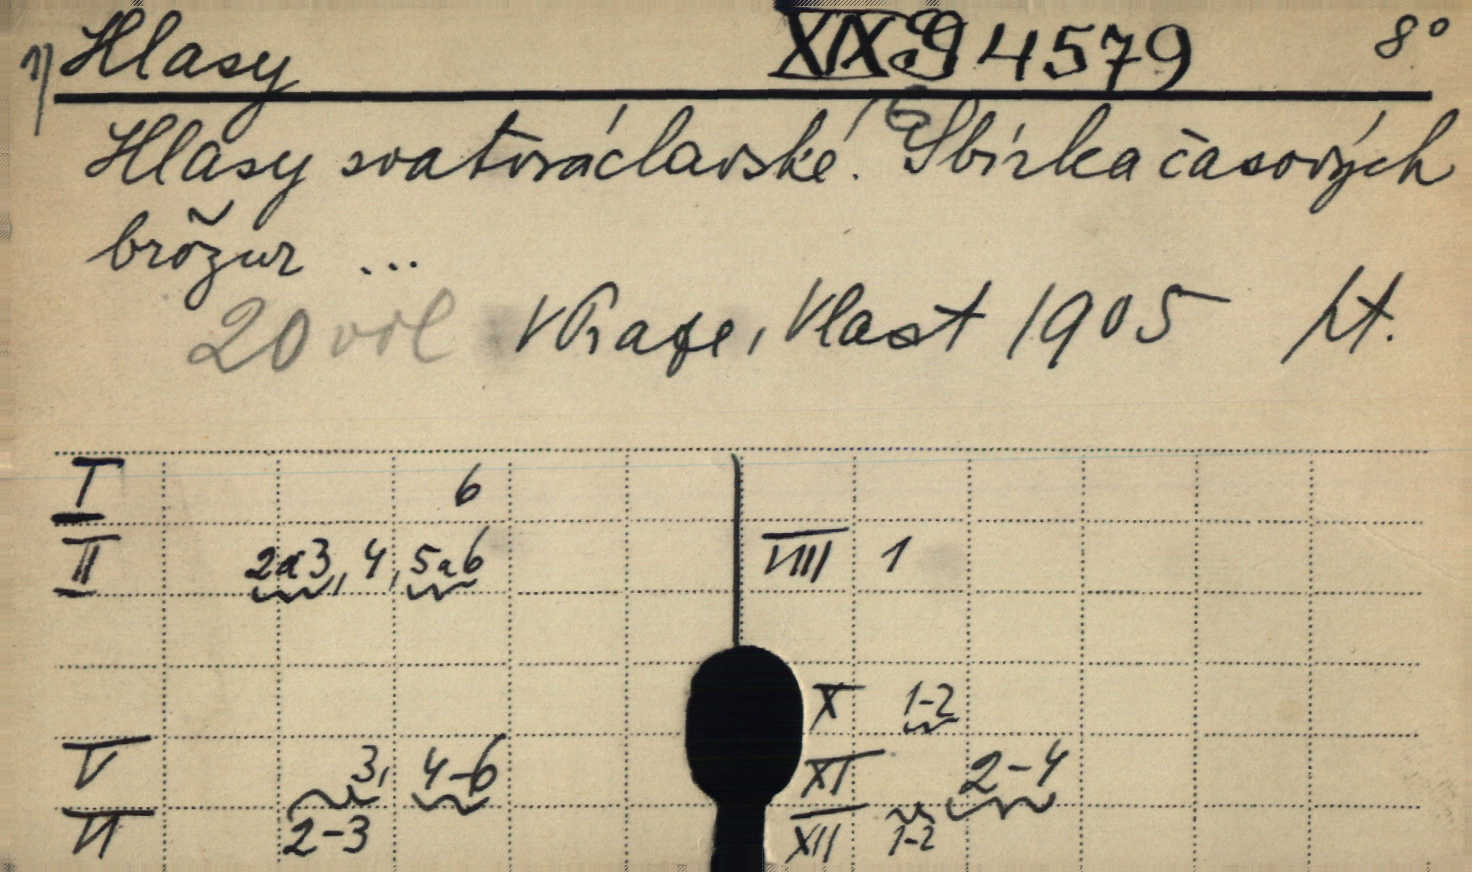 Hlasy XIX G 4579 8°
Hlasy svatováclavské. Sbírka časových
brožur ...
20 vol V Praze, Vlast 1905 št.
I 6
II 2a3, 4, 5a6 VIII 1
X 1-2
V 3, 4-6 XI 2-4
VI 2-3 XII 1-2